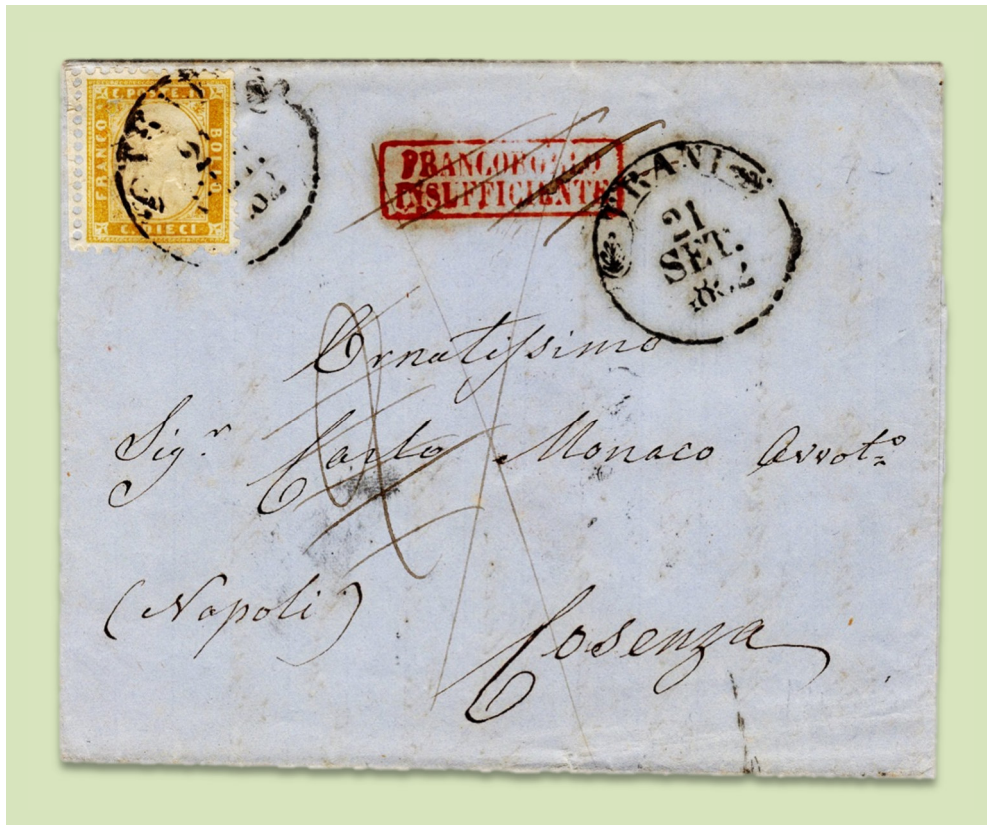 C. POSTE. I
FRANCO
BOLLO
C. DIECI
FRANCOBOLLO
INSUFFICIENTE
TRANI
21
SET.
1862
Ornatissimo
Sig.r Carlo Monaco Avvot.o
(Napoli)
Cosenza